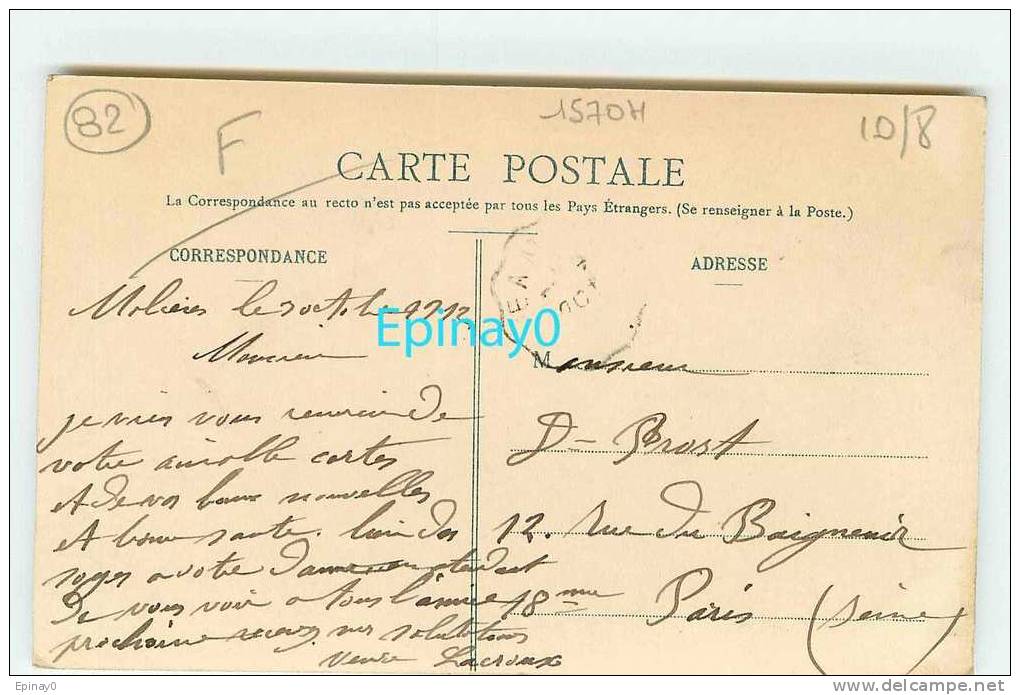 82
F
1570H
10/8
CARTE POSTALE
La Correspondance au recto n'est pas acceptée par tous les Pays Étrangers. (Se renseigner à la Poste.)
CORRESPONDANCE
Molières le octobre
Monsieur
je viens vous remercie de
votre aimable cartes
et de vos bonne nouvelles
et bonne sante. bien des
a votre dame en attendant
de vous voir a tous l'année
prochaine recevez mes salutations
Veuve Lacroux
ADRESSE
Monsieur
D- Prost
12. Rue du Baigneur
18me Paris (Seine)
Epinay0
Epinay0
www.delcampe.net